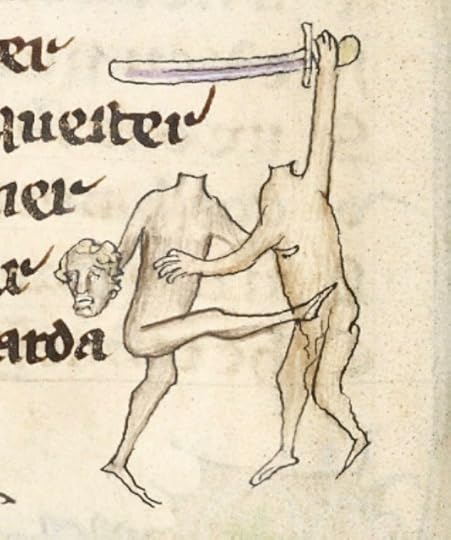 er
quester
ner
r
arda